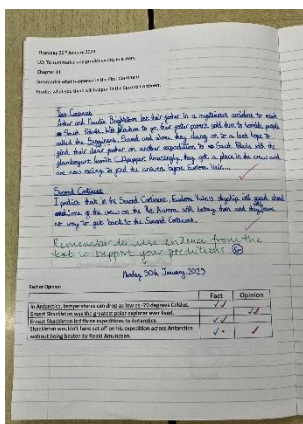 Thursday 26th January 2023
LO: To summarise and predict events in a story.
Chapter 11
Summarise what happened in the First Continent.
Predict what you think will happen in the Second Continent.
First Continent
Arthur and Maudie Brightstorm lost their father in a mysterious accident to reach
South Polaris. With to go, their father's was sold due to horrible people
called the Begginses. Scared and alone, they clung on to a last hope to
find their dear father on another expedition to South Polaris with the
glamourous Harriet Culpepper. Amazingly, they got a place in the crew and
are now racing to find the answers against Eudora Vain...
Second Continent
I predict that in the Second Continent, Eudora Vain's ship will
and some of the crew on the Aurora will betray them and they have
no way to get back to the Second Continent.
Remember to use evidence from the
text to support your predictions.
Monday 30th January 2023
Fact or Opinion
Fact Opinion
In Antarctica, temperatures can drop as low as -70 degrees Celsius.
Ernest Shackleton was the greatest polar explorer ever lived.
Ernest Shackleton led three expeditions to Antarctica.
Shackleton wouldn't have set off on his expedition across Antarctica
without being beaten by Roald Amundsen.